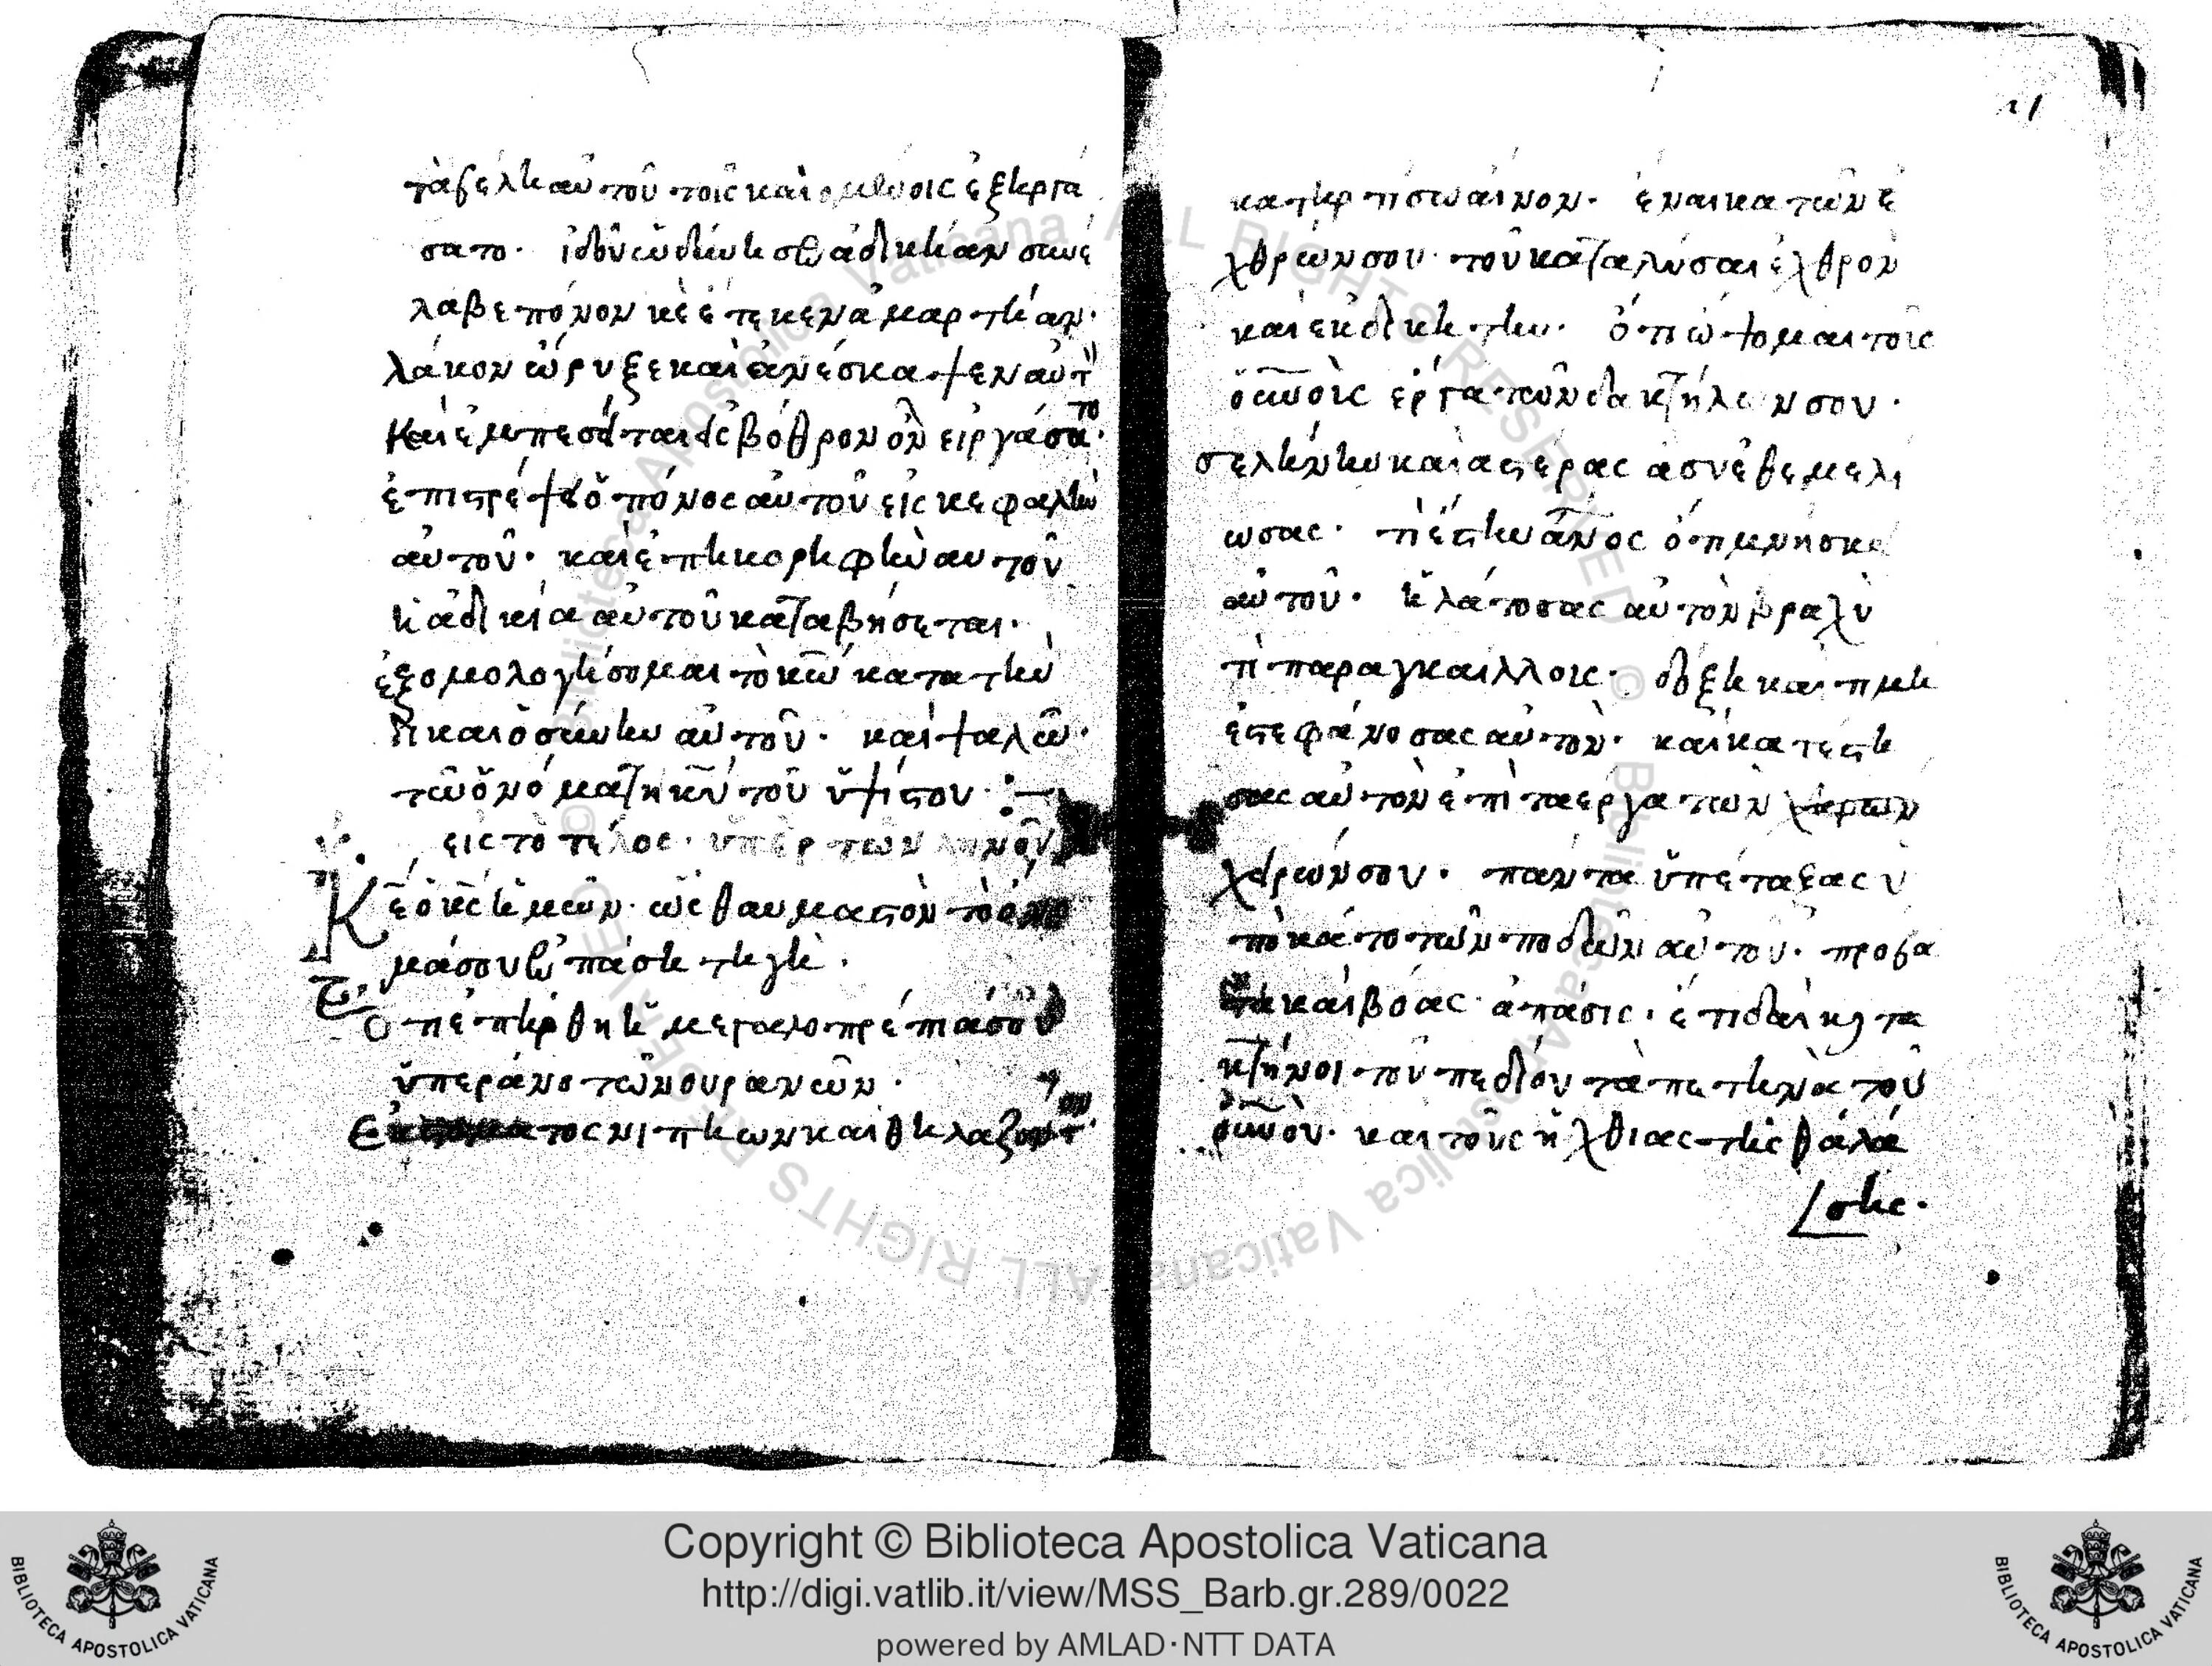 τὰ βέλη αὐτοῦ τοῖς καιομένοις ἐξηργά
σατο. ἰδοῦ ὠδήνησεν ἀδικήαν συνέ
λαβε πόνον κὲ ἔτεκεν ἁμαρτήαν.
λάκον ὤρυξε καὶ ἀνέσκαψεν αὐτ
καὶ ἐμπεσεῖται εἰς βόθρον ὃν εἰργάσατο.
ἐπιστρέψει ὁ πόνος αὐτοῦ εἰς κεφαλὴν
αὐτοῦ. καὶ ἐπὴ κορηφὴν αυτοῦ
ἡ ἀδικία αὐτοῦ καταβήσεται.
ἐξομολογήσομαι τὸ κ̅ω̅ κατα τὴν
δικαιοσύνην αὐτοῦ. καὶ ψαλῶ.
τῶ ὀνόματη κ̅υ̅ τοῦ ὑψίστου :—
εις τὸ τέλος. ὑπὲρ τῶν ληνῶν
Κ̅ε̅ ὁ κ̅ς̅ ἡμῶν. ὡς θαυμαστὸν τὸ ὄνο
μά σου ἐν πάση τη γὴ.
Ὁτη ἐπήρθη ἡ μεγαλοπρέπιά σου
ὑπεράνο τῶν ουρανῶν.
Εκ στοματος νιπήων και θηλαζοντ
κατηρτίσω αἶνον. ἕναικα τῶν ἐ
χθρῶν σου. τοῦ καταλύσαι ἐχθρὸν
και εκδικητην. ὅτι ὤψομαι τοῖς
ο̅υ̅ν̅οὶς έργα τῶν δακτήλων σου.
σελήνην και αστέρας ἃ σὺ ἐθεμελι
ωσας. τὶ ἐστην α̅ν̅ος ὅτι μιμνήσκε
αὐτοῦ. ἠλάτοσας αὐτὸν βραχὺ
τὶ παρ αγκαίλλοις. δόξη καὶ τιμὴ
ἐστεφάνοσας αὐτὸν. καὶ κατεστη
σας αὐτὸν ἐπὶ τα έργα τῶν χειρων
χειρῶν σου. πάντα ὑπέταξας ὑ
πὸ κάτο τῶν ποδῶν αὐτοῦ. προβα
τα καὶ βόας ἁπάσις. ἔτι δαὶ κ̀ τα
κτήνοι τοῦ πεδίου τὰ πετηνὰ τοῦ
ο̅υ̅ν̅οῦ. και τοῦς ἠχθιας τῆς θάλά
σης.
Copyright © Biblioteca Apostolica Vaticana
http://digi.vatlib.it/view/MSS_Barb.gr.289/0022
powered by AMLAD·NTT DATA